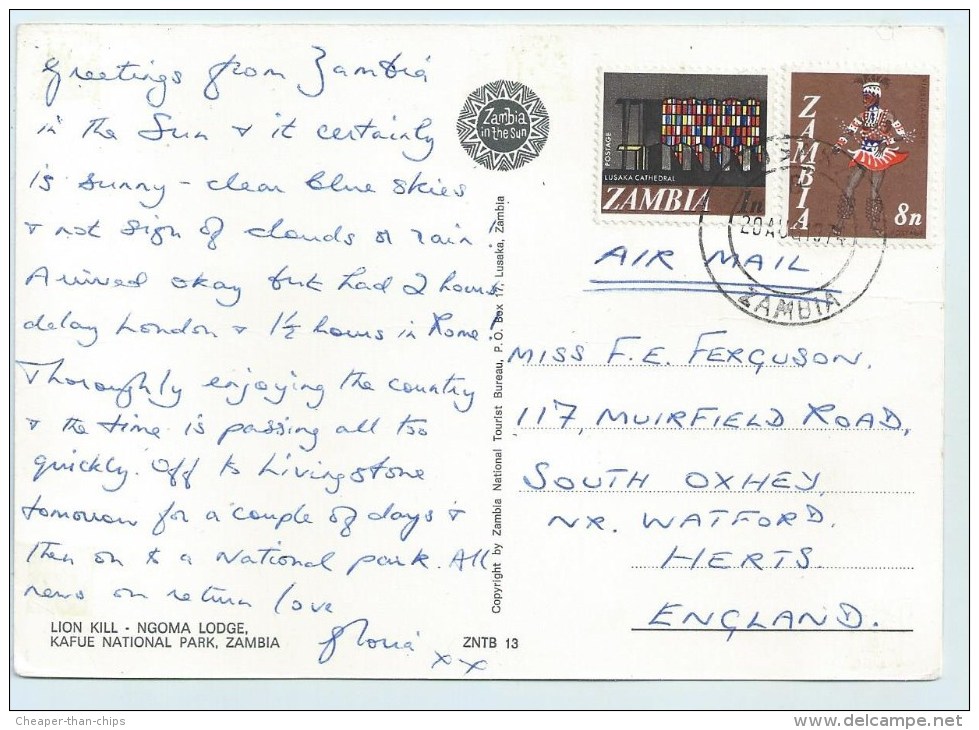 Greetings from Zambia
in the Sun & it certainly
is sunny - clear blue skies
& not sign of clouds or rain!
Arrived okay but had 2 hours
delay London & 1½ hours in Rome!
Thoroughly enjoying the country
& the time is passing all too
quickly. Off to Livingstone
tomorrow for a couple of days &
then on to a National park. All
news on return love
Gloria
xx
LION KILL - NGOMA LODGE,
KAFUE NATIONAL PARK, ZAMBIA
ZNTB 13
Zambia
in the Sun
Copyright by Zambia National Tourist Bureau, P.O. Box 17, Lusaka, Zambia
POSTAGE
LUSAKA CATHEDRAL
ZAMBIA
1n
ZAMBIA
8n
POSTAGE
20 AUG 1974
ZAMBIA
AIR MAIL
MISS F.E. FERGUSON,
117, MUIRFIELD ROAD,
SOUTH OXHEY,
NR. WATFORD.
HERTS.
ENGLAND.
Cheaper-than-chips
www.delcampe.net